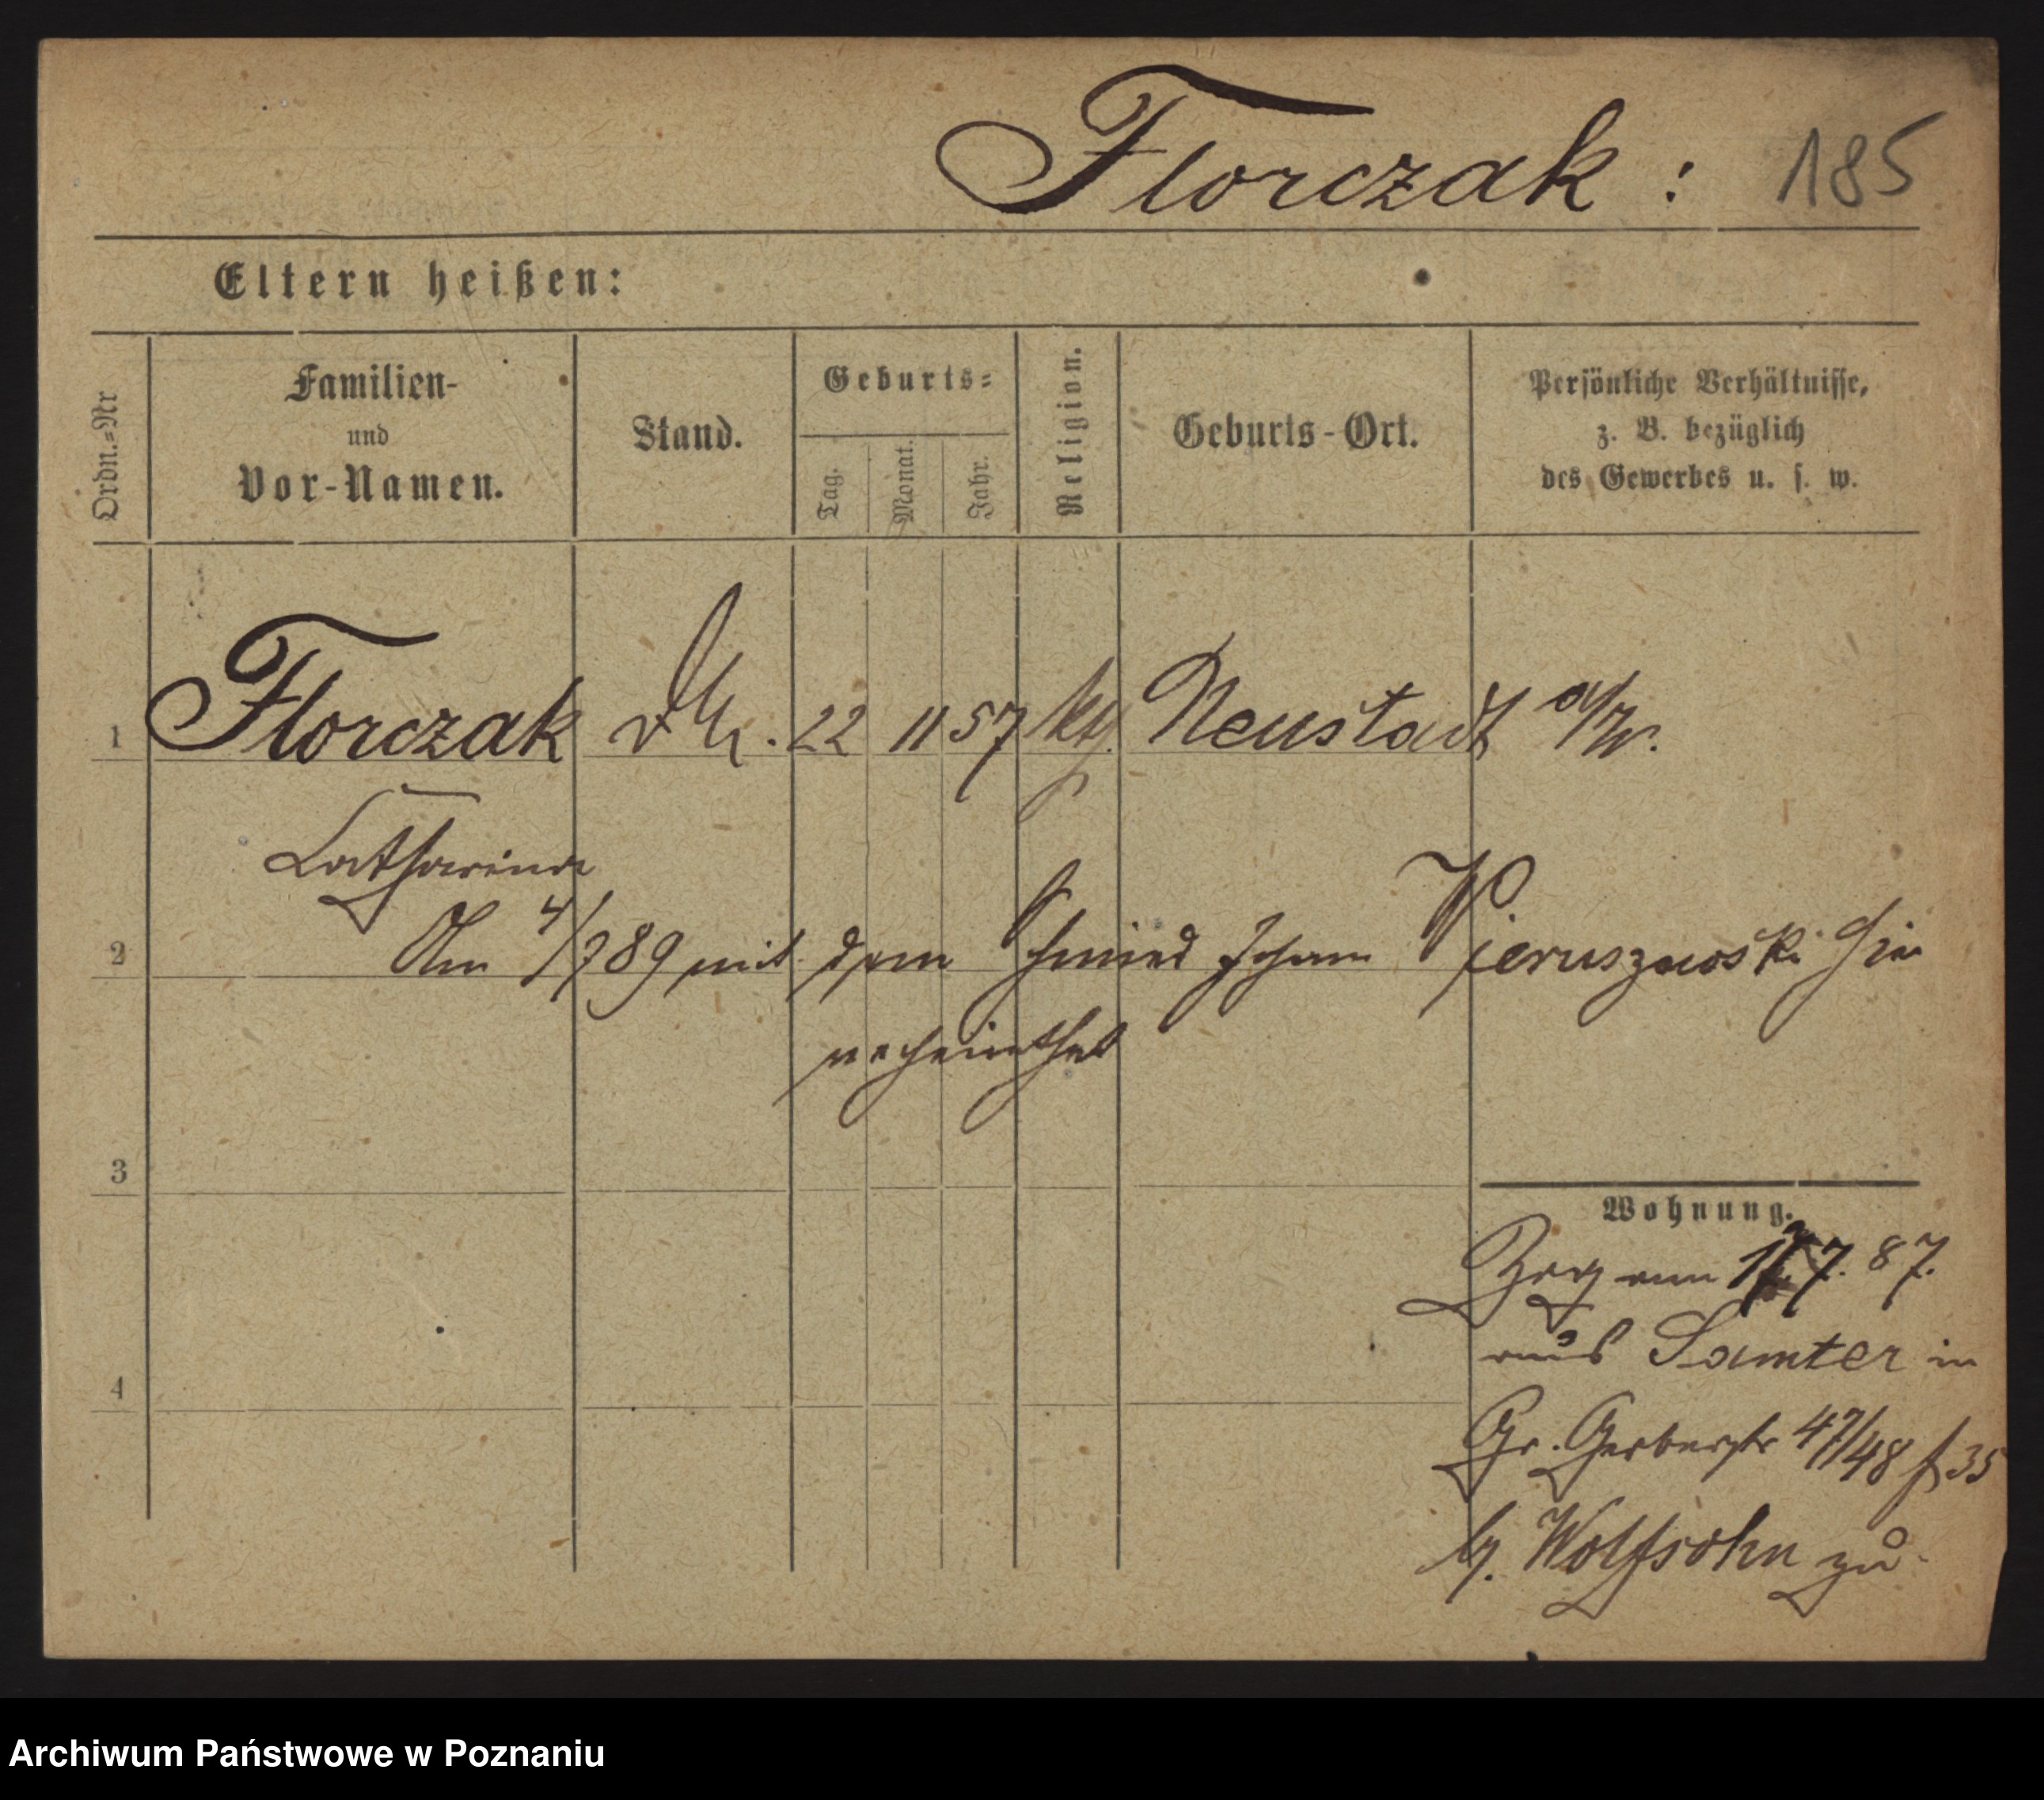 Florczak : 185
Eltern heißen:
Ordn.=Nr
Familien-
und
Vor-Namen.
Stand.
Geburts=
Tag.
Monat.
Jahr.
Religion.
Geburts-Ort.
Persönliche Verhältnisse,
z. B. bezüglich
des Gewerbes u. s. w.
1 Florczak 22 11 57 ktg. Neustadt a/W.
Catharina
2 Am 4/7 89 mit dem Schmied Johann Pieruszewski hier
verheirathet
3
Wohnung.
Zog am 7. 87.
aus Samter in
4
Gr. Gerberstr 47/48 f 35
b. Wolfsohn zu
Archiwum Państwowe w Poznaniu